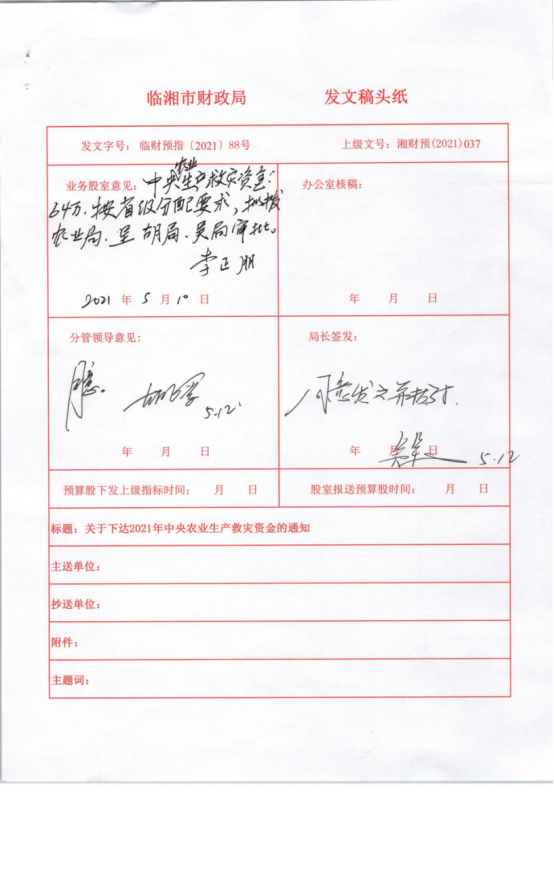 临湘市财政局 发文稿头纸
发文字号：临财预指（2021）88号 上级文号：湘财预(2021)037
业务股室意见：中央农业生产救灾资金：
64万.按省级分配要求，拟拨
农业局.呈胡局、吴局审批。
李正朋
2021 年 5 月 10 日
办公室核稿：
年 月 日
分管领导意见：
同意。
5.12
年 月 日
局长签发：
同意发文并拨付.
年 月 日
5.12
预算股下发上级指标时间： 月 日
股室报送预算股时间： 月 日
标题：关于下达2021年中央农业生产救灾资金的通知
主送单位：
抄送单位：
附件：
主题词：